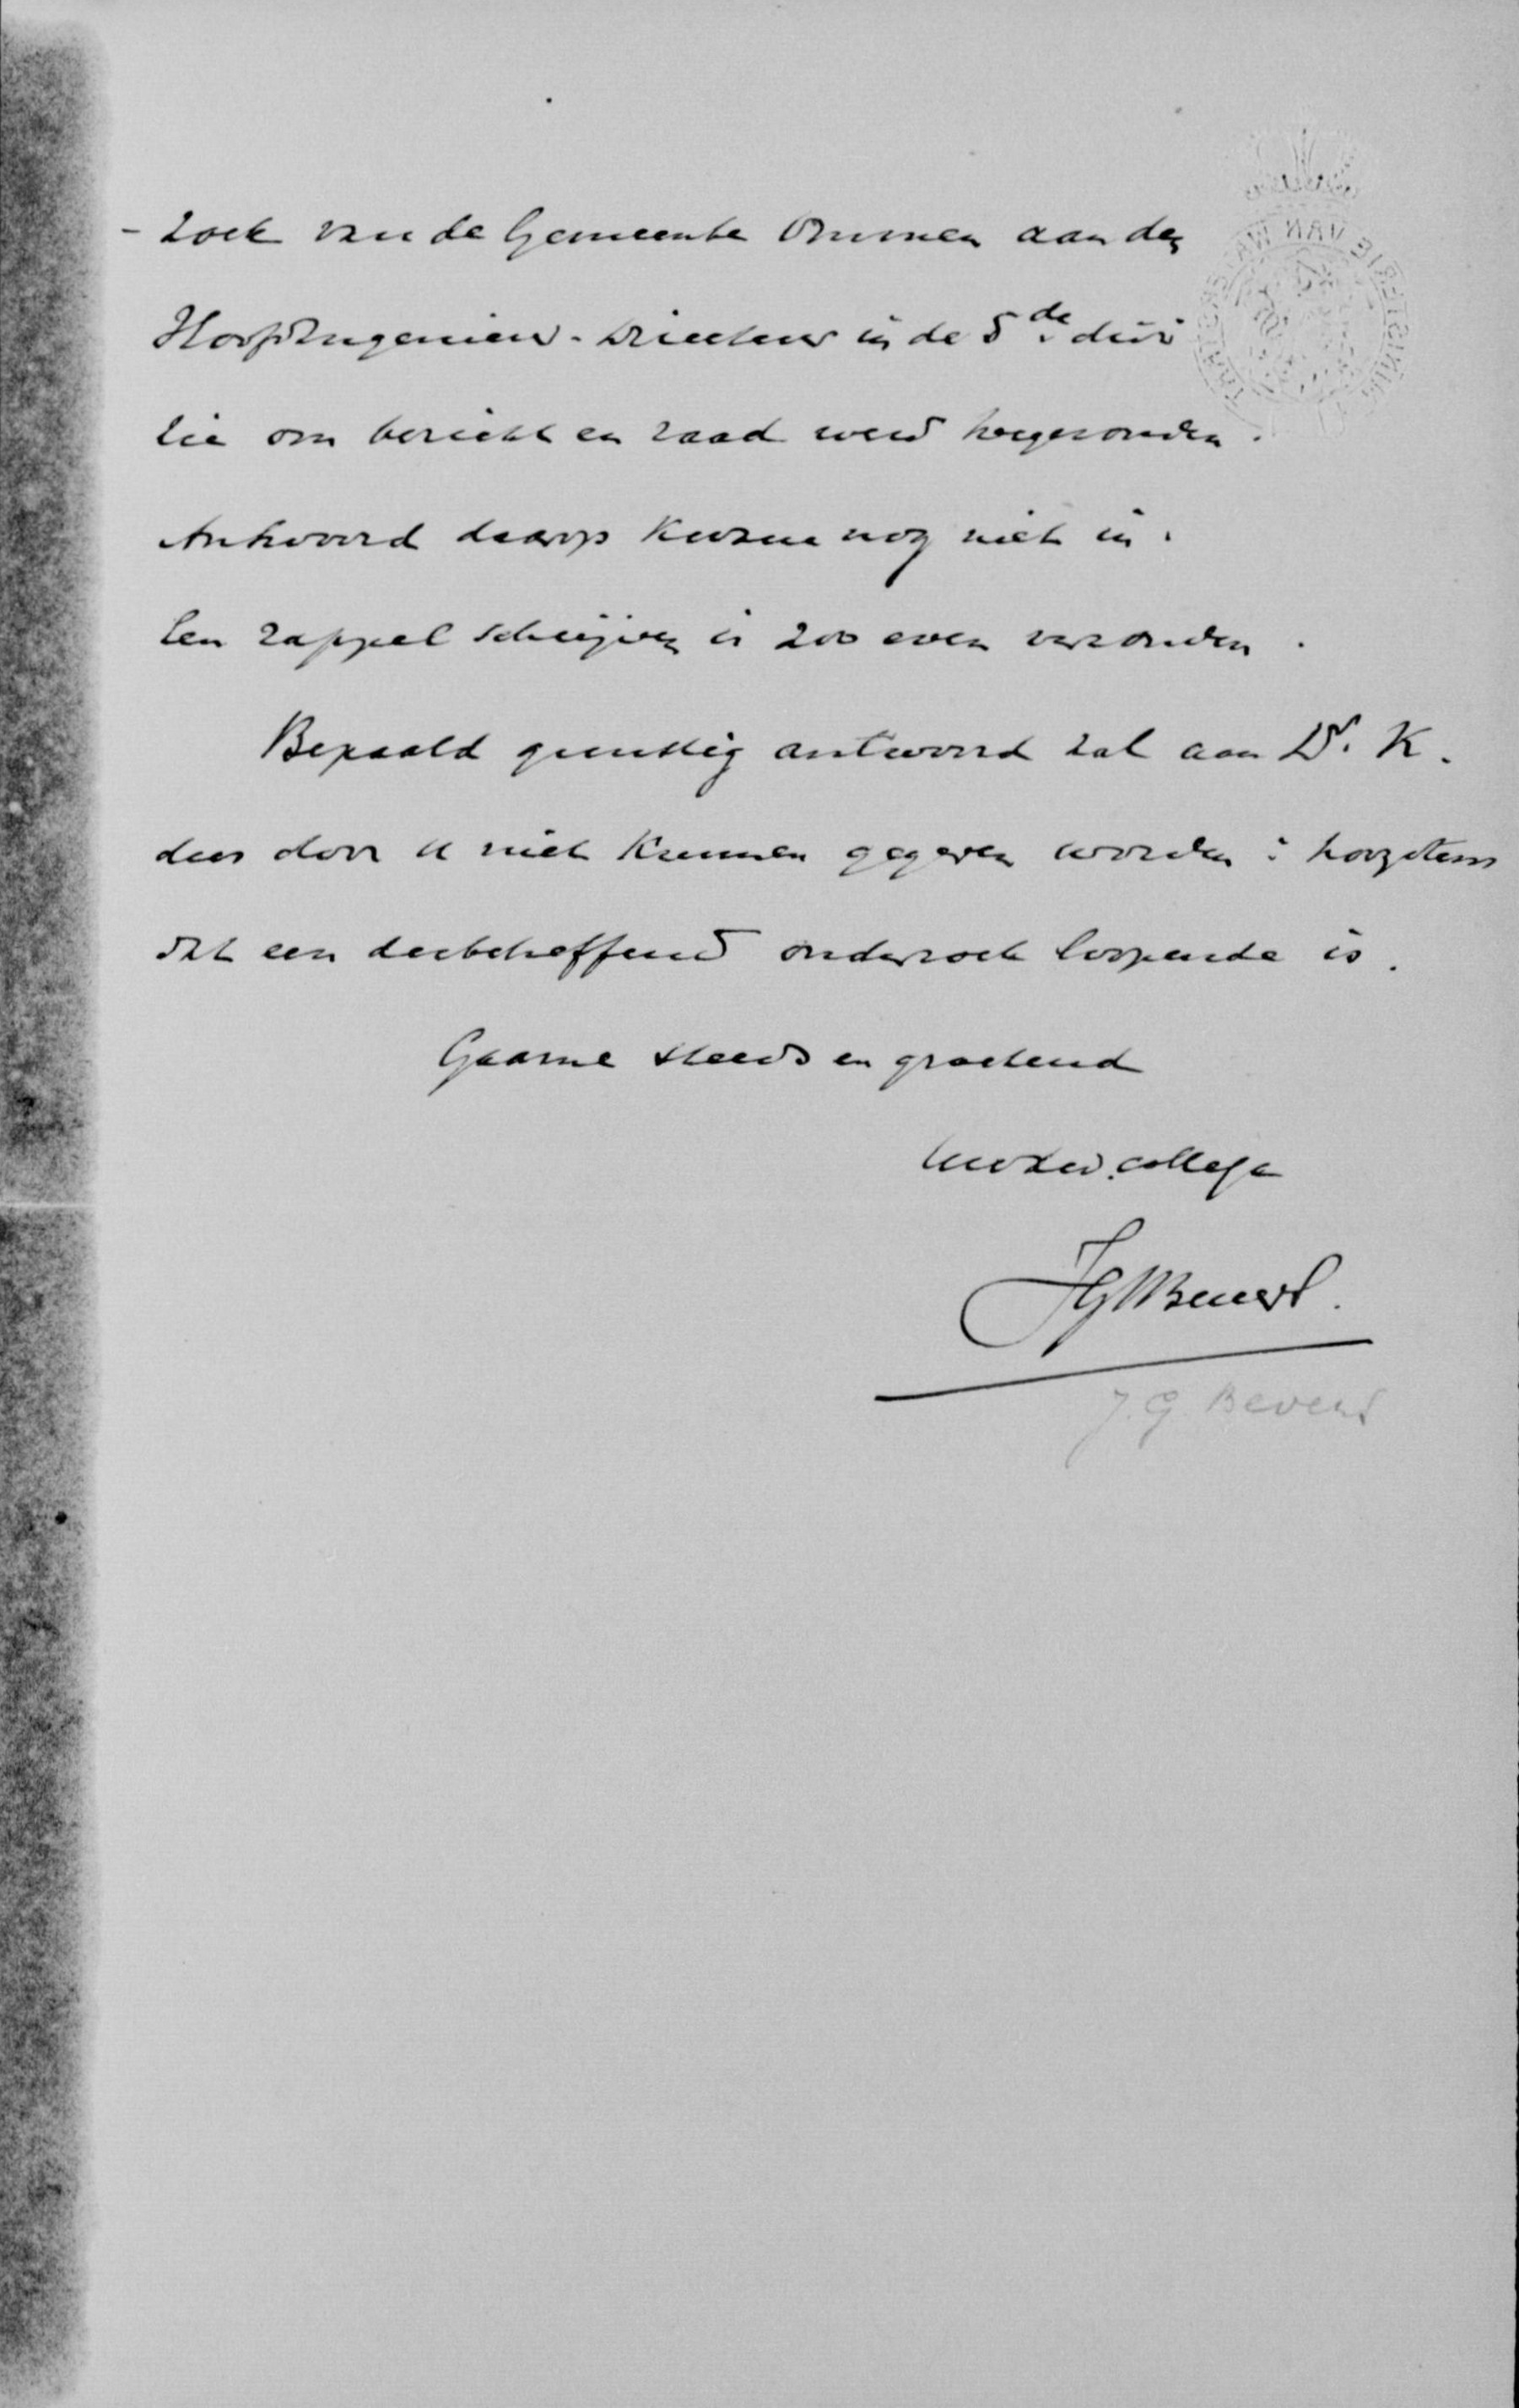 - zoek van de Gemeente Ommen aan den
Hoofdingenieur-Directeur in de 5de direc
tie om bericht en raad werd toegezonden.
Antwoord daarop kwam nog niet in.
Een rappel schrijven is zoo even verzonden.
Bepaald gunstig antwoord zal aan Dr. K.
dus door U niet kunnen gegeven worden: hoogstens
dat een desbetreffend onderzoek loopende is.
Gaarne steeds en groetend
Uw dw. collega
JGWBevert.
J. G. Bevers
MINISTERIE VAN WATERSTAAT